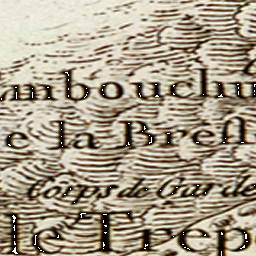 ambouchu
e la Breſſ
Corps de Gar de
le Trep